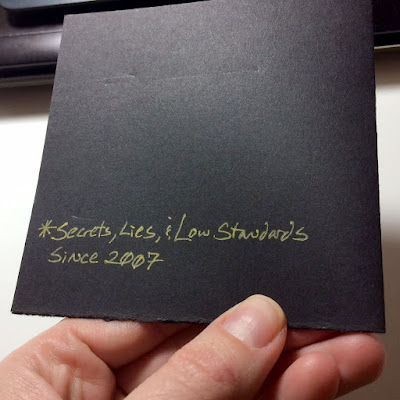 *Secrets, Lies, & Low Standards
Since 2007